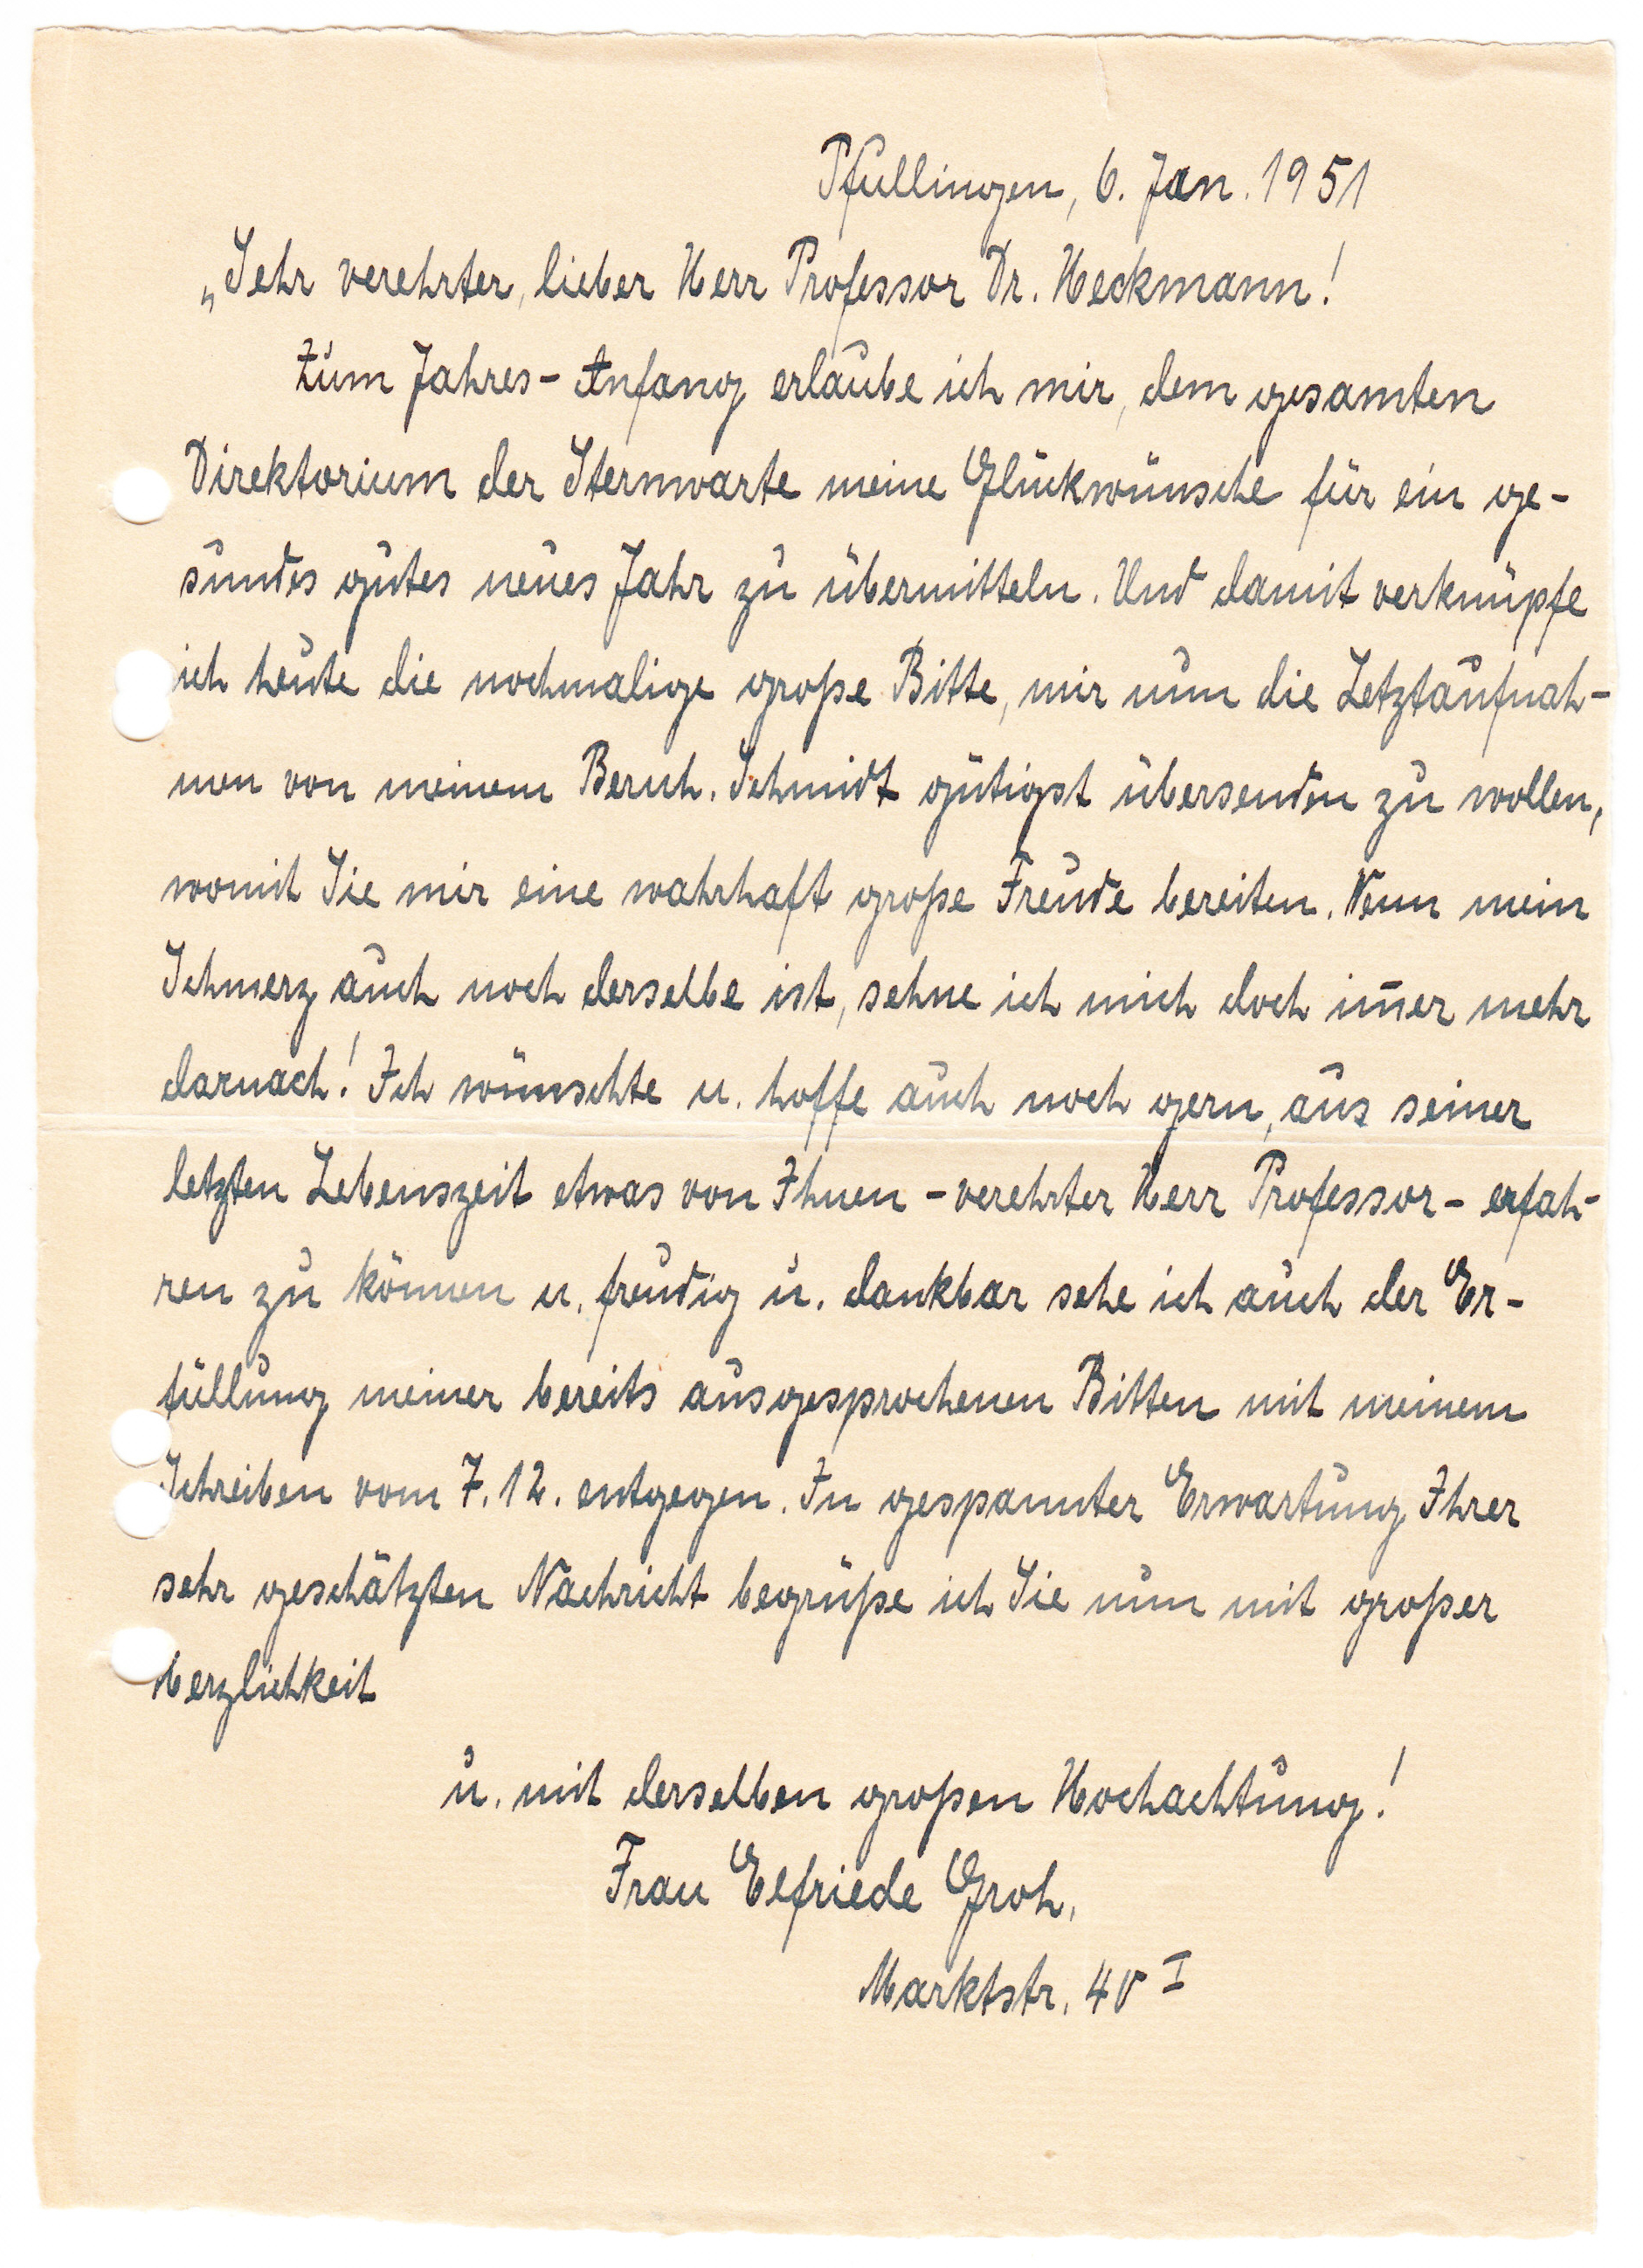 Pfullingen, 6. Jan. 1951
„Sehr verehrter, lieber Herr Professor Dr. Heckmann!
Zum Jahres-Anfang erlaube ich mir, dem gesamten
Direktorium der Sternwarte meine Glückwünsche für ein ge-
sundes gutes neues Jahr zu übermitteln. Und damit verknüpfe
ich heute die nochmalige große Bitte, mir nun die Letztaufnah-
men von meinem Bernh. Schmidt gütigst übersenden zu wollen,
womit Sie mir eine wahrhaft große Freude bereiten. Wenn mein
Schmerz auch noch derselbe ist, sehne ich mich doch im̄er mehr
darnach! Ich wünschte u. hoffe auch noch gern, aus seiner
letzten Lebenszeit etwas von Ihnen - verehrter Herr Professor - erfah-
ren zu können u. freudig u. dankbar sehe ich auch der Er-
füllung meiner bereits ausgesprochenen Bitten mit meinem
Schreiben vom 7.12. entgegen. In gespannter Erwartung Ihrer
sehr geschätzten Nachricht begrüße ich Sie nun mit großer
Herzlichkeit
u. mit derselben großen Hochachtung!
Frau Elfriede Groh,
Marktstr. 40 I